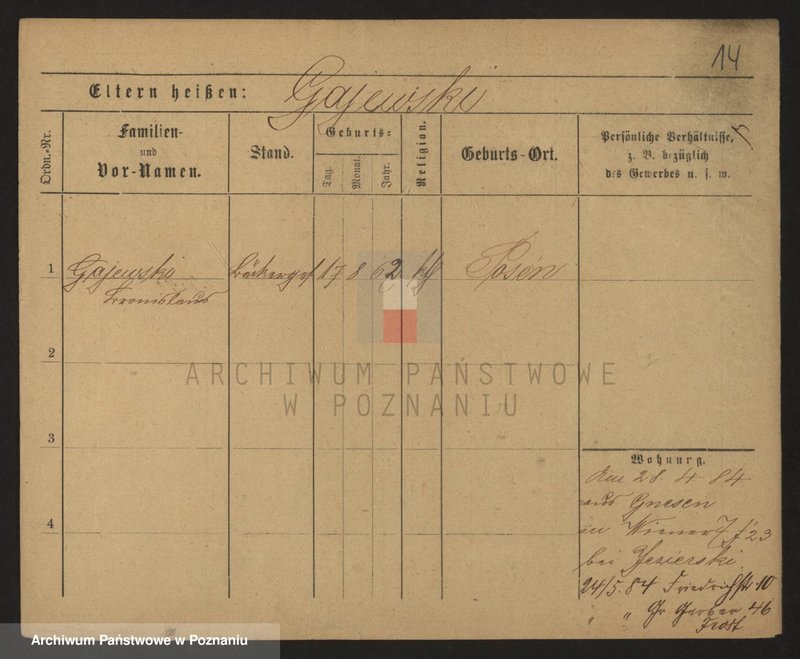 14
Eltern heißen: Gajewski
Ordn.-Nr.
Familien-
und
Vor-Namen.
Stand.
Geburts-
Tag.
Monat.
Jahr.
Religion.
Geburts-Ort.
Persönliche Verhältnisse,
z. B. bezüglich
des Gewerbes u. s. w.
1 Gajewski Bäckerges 17 8 62 Posen
Bronislaus
2
3
4
ARCHIWUM PAŃSTWOWE
W POZNANIU
Wohnung.
Am 28. 4 84
aus Gnesen
in Wiener 23
bei Jezierski
24/5. 84 Friedrichstr. 10
" " Gr. Gerber 46
Frost
Archiwum Państwowe w Poznaniu